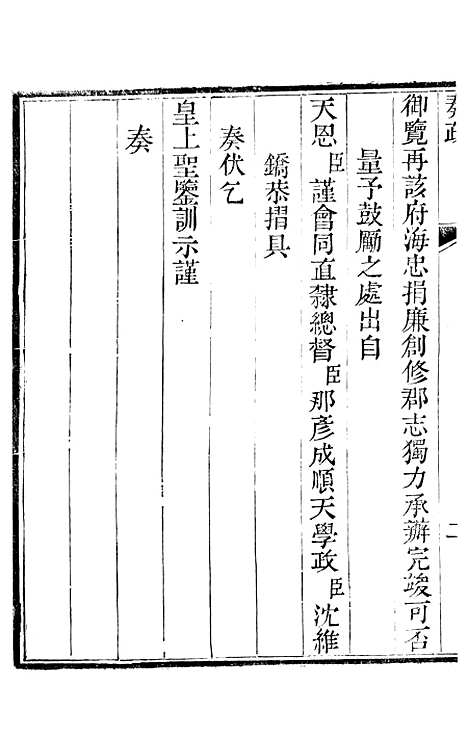 奏疏
二
御覽再該府海忠捐廉創修郡志獨力承辦完竣可否
量予鼓勵之處出自
天恩臣謹會同直隸總督臣那彥成順天學政臣沈維
鐈恭摺具
奏伏乞
皇上聖鑒訓示謹
奏